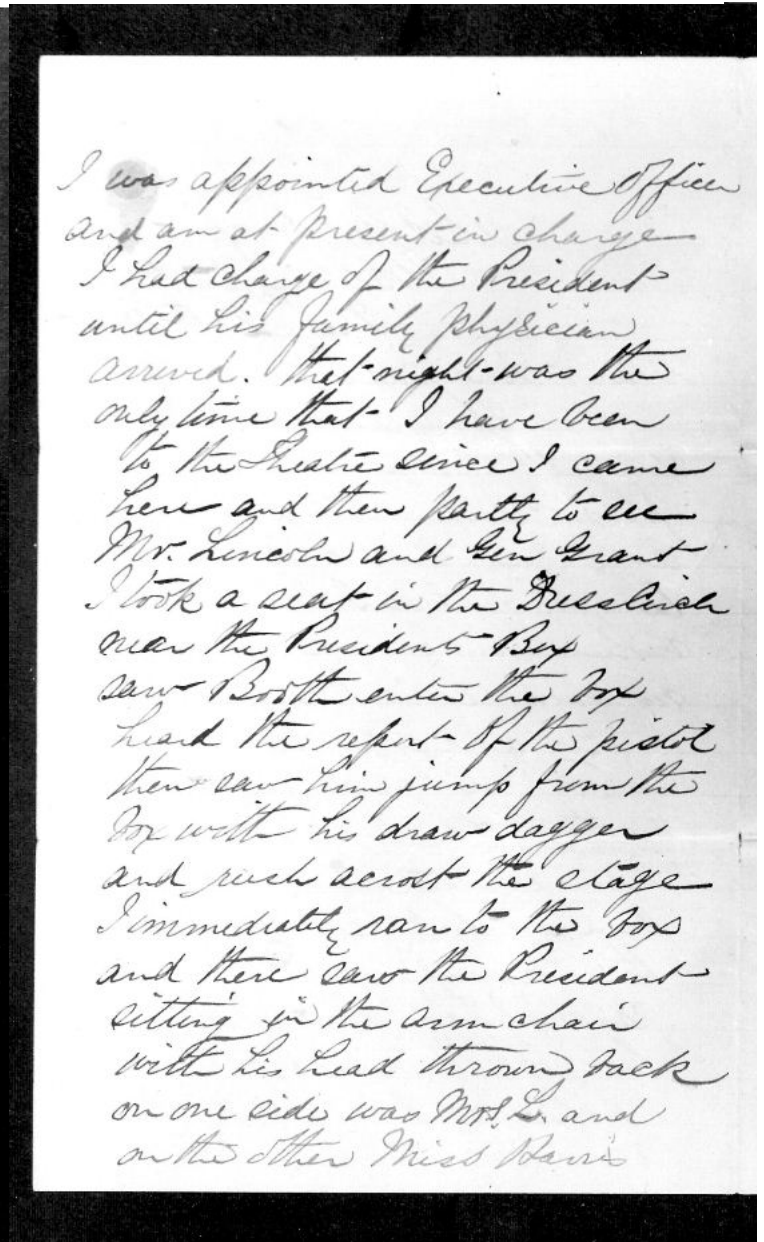 I was appointed Executive Officer
and am at present in charge
I had charge of the President
until his family physician
arrived. that night was the
only time that I have been
to the Theatre since I came
here and then partly to see
Mr. Lincoln and Gen Grant
I took a seat in the Dress Circle
near the Presidents Box
saw Booth enter the box
heard the report of the pistol
then saw him jump from the
box with his draw dagger
and rush acrost the stage
I immediately ran to the box
and there saw the President
sitting in the arm chair
with his head thrown back
on one side was Mrs. L. and
on the other Miss Harris